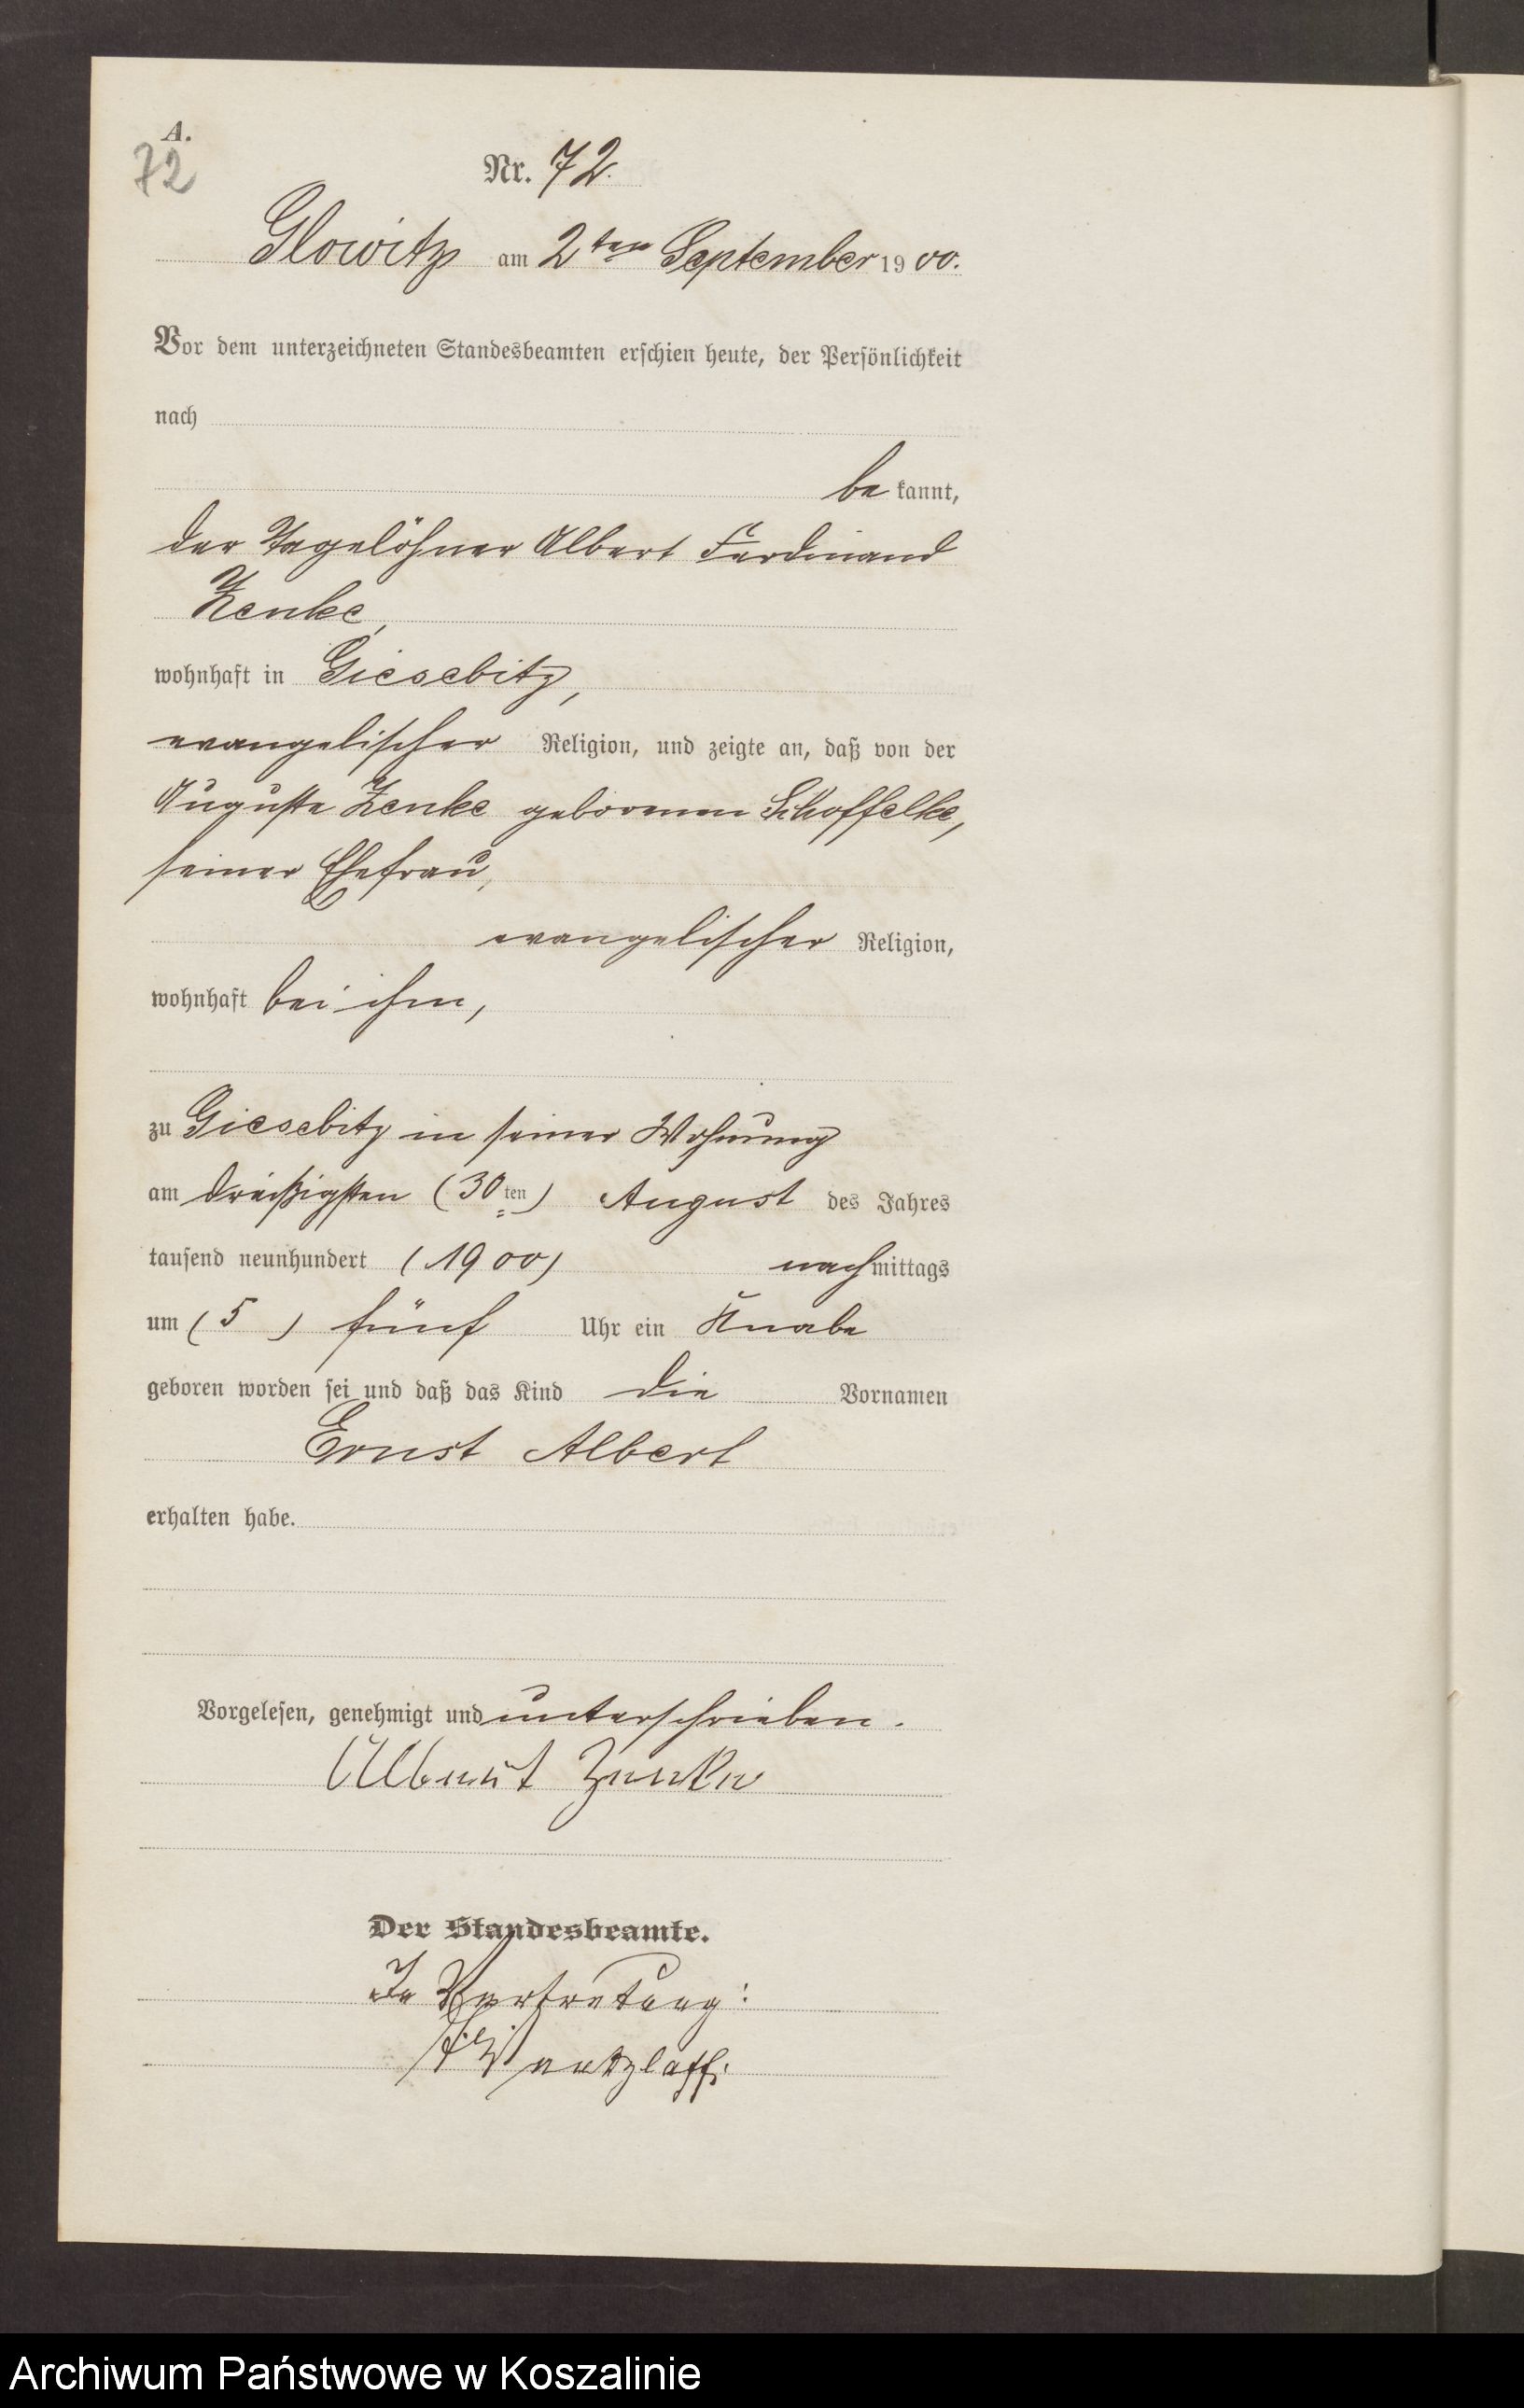 A.
72
Nr. 72.
Glowitz am 2ten September 1900.
Vor dem unterzeichneten Standesbeamten erschien heute, der Persönlichkeit
nach
bekannt,
der Tagelöhner Albert Ferdinand
Zenke,
wohnhaft in Giesebitz,
evangelischer Religion, und zeigte an, daß von der
Auguste Zenke geborenen Schoffelke,
seiner Ehefrau,
evangelischer Religion,
wohnhaft bei ihm,
zu Giesebitz in seiner Wohnung
am dreißigsten (30ten) August des Jahres
tausend neunhundert (1900) nachmittags
um (5) fünf Uhr ein Knabe
geboren worden sei und daß das Kind die Vornamen
Ernst Albert
erhalten habe.
Vorgelesen, genehmigt und unterschrieben.
Albert Zenke
Der Standesbeamte.
In Vertretung:
Wentzlaff.
Archiwum Państwowe w Koszalinie